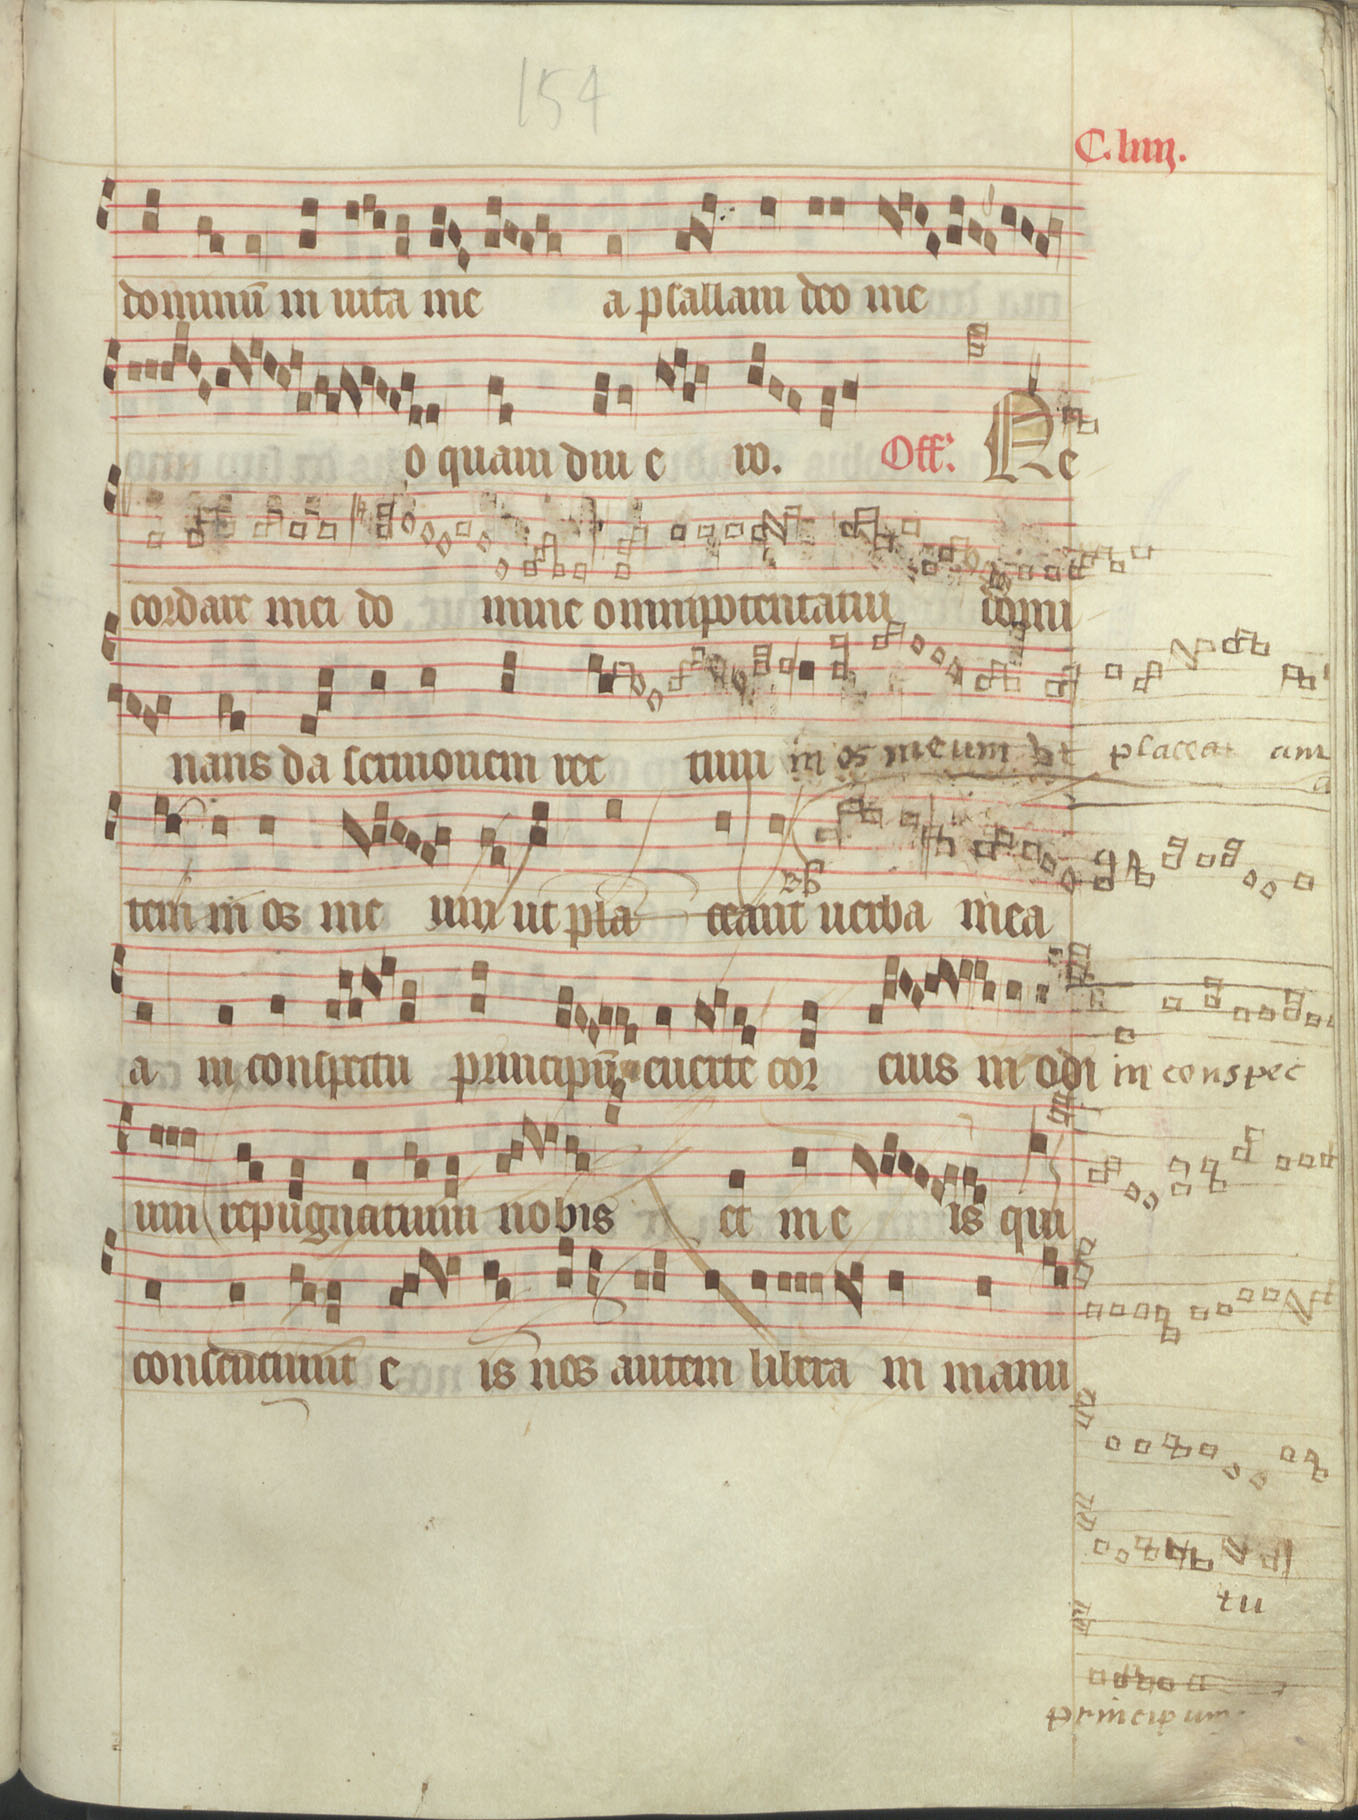 154
C. liiij.
dominū in uita me a psallam deo me
o quam diu e ro. Off. Re
cordare mei do mine omnipotentatui domi
nans da sermonem rec tum in os meum vt placeat
tem in os me um ut pla ceant uerba mea
a in conspectu principū euerte cor eius in odi in conspec
um repugnatium nobis et in e is qui
consenciunt e is nos autem libera in manu
tu
principum